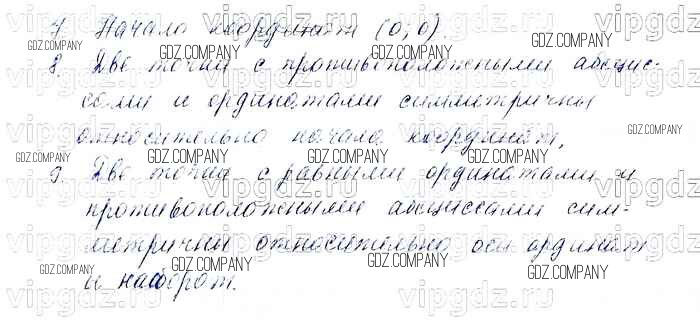 7. Начало координат (0; 0).
8. Две точки с противоположными абсцис-
сами и ординатами симметричны
относительно начала координат.
9. Две точки с равными ординатами и
противоположными абсциссами сим-
метричны относительно оси ординат
и наоборот.